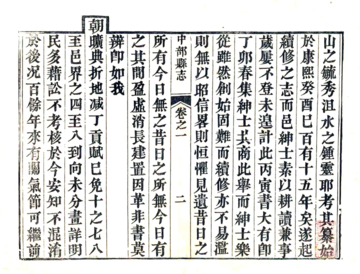 山之毓秀沮水之鍾靈耶考其纂始
於康熙癸酉已百有十五年矣遂起
續修之志而邑紳士素以耕讀兼事
歲屢不登未遑計此丙寅書大有即
丁卯春集紳士共商此舉而紳士樂
從雖然創始固難而續修亦不易濫
則無以昭信畧則恒懼見遺昔日之
中部縣志 卷之一 二
所有今日無之昔日之所無今日有
之其間盈虛消長建置因革非書莫
辨卽如我
朝曠典折地減丁貢賦已免十之七八
至邑界之四至八到向未分晝詳明
民多藉訟不考核於今安知不混淆
於後况百餘年來有關氣節可繼前